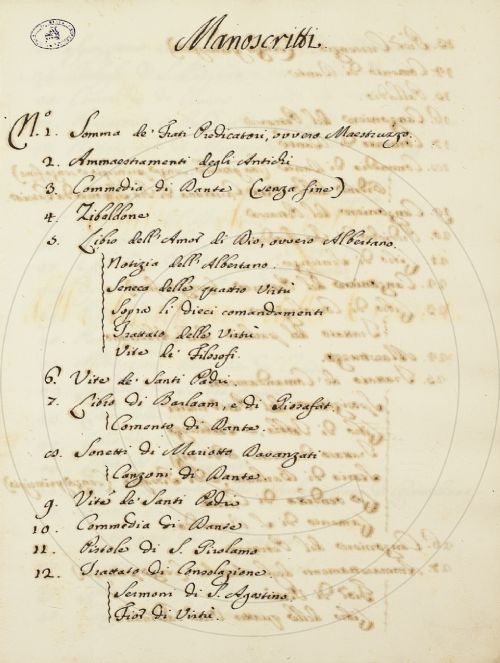 Manoscritti.
N.º 1. Somma de' Frati Predicatori, ovvero Maestruzzo.
2. Ammaestramenti degli Antichi
3. Commedia di Dante (senza fine)
4. Ziboldone
5. Libro dell'Amor di Dio, ovvero Albertano.
Notizia dell'Albertano.
Seneca delle quattro Virtù
Sopra li dieci comandamenti
Trattato delle Virtù
Vite de' Filosofi.
6. Vite de' Santi Padri
7. Libro di Barlaam, e di Giosafat.
Comento di Dante.
8. Sonetti di Mariotto Davanzati
Canzoni di Dante.
9. Vite de' Santi Padri
10. Commedia di Dante
11. Pistole di S. Girolamo
12. Trattato di Consolazione.
Sermoni di S. Agostino.
Fior di Virtù.